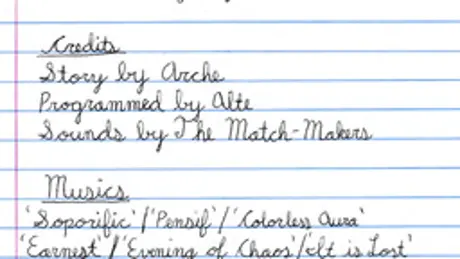 Credits
Story by Arche
Programmed by Alte
Sounds by The Match-Makers
Musics
'Soporific'/'Pensif'/'Colorless Aura'
'Earnest'/'Evening of Chaos'/'It is Lost'